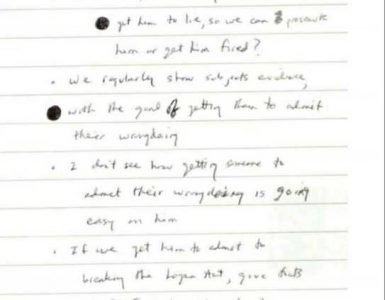 get him to lie, so we can prosecute
him or get him fired?
• We regularly show subjects evidence,
with the goal of getting them to admit
their wrongdoing
• I don't see how getting someone to
admit their wrongdoing is going
easy on him
• If we get him to admit to
breaking the Logan Act, give facts